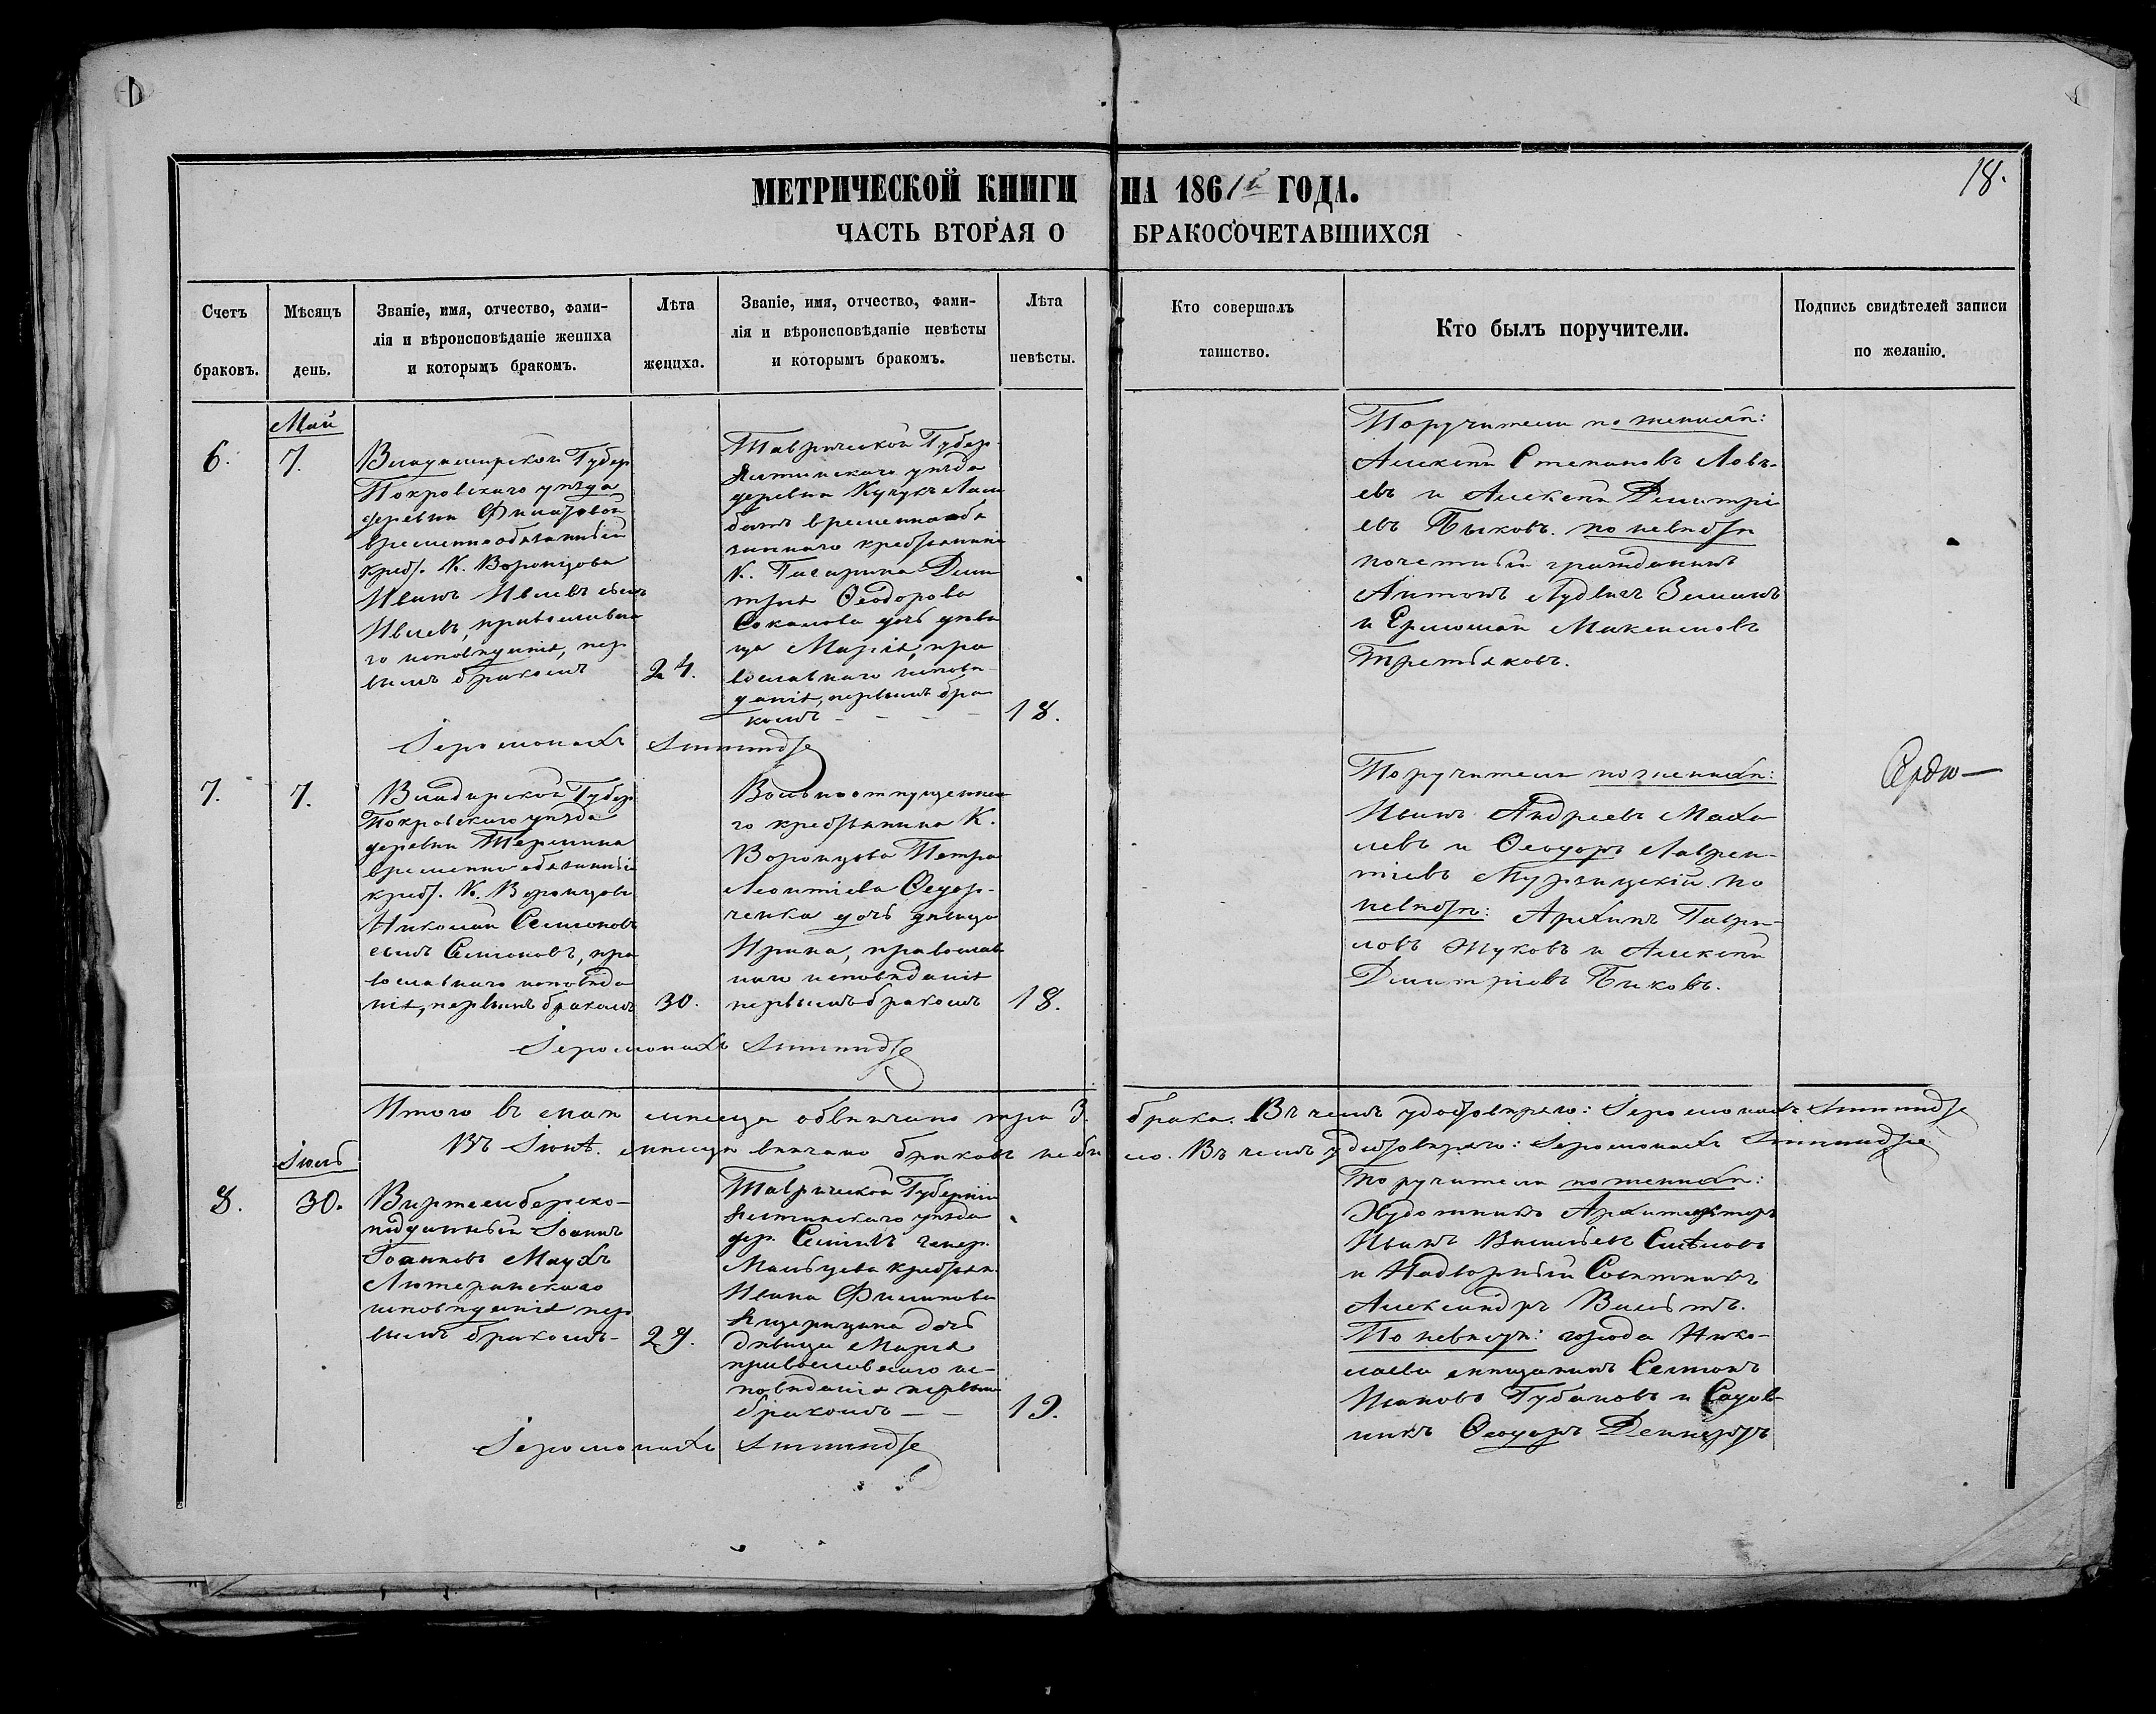 18.
МЕТРИЧЕСКОЙ КНИГИ НА 1861й ГОДА.
ЧАСТЬ ВТОРАЯ О БРАКОСОЧЕТАВШИХСЯ
Счетъ
браковъ.
Мѣсяцъ
день.
Званіе, имя, отчество, фами-
лія и вѣроисповѣданіе жениха
и которымъ бракомъ.
Лѣта
жениха.
Званіе, имя, отчество, фами-
лія и вѣроисповѣданіе невѣсты
и которымъ бракомъ.
Лѣта
невѣсты.
Кто совершалъ
таинство.
Кто былъ поручители.
Подпись свидѣтелей записи
по желанію.
Май
6.
7.
Владимирской Губер
Покровскаго уѣзда
деревни
временнообязанный
крест. К. Воронцова
Иванъ Ивлевъ сынъ
Ивлевъ, православна
го исповѣданія, пер
вымъ бракомъ
24.
Таврической Губер.
Ялтинскаго уѣзда
деревни Кучукъ Лам
батъ временнообя
заннаго крестьянина
К. Гагарина Дими
трія Ѳеодорова
дочь дѣви
ца Марія, пра
вославнаго исповѣ
данія, первымъ бра
комъ
18.
Поручители по женихѣ:
Алексѣй Степановъ
евъ и Алексѣй Димитрі
евъ Быковъ. по невѣстѣ
почетный гражданинъ
Антонъ
и Ермолай Максимовъ
Третьяковъ.
Іеромонахъ
7.
7.
Губер
Покровскаго уѣзда
деревни
временно обязанный
крест. К. Воронцова
Николай Семеновъ
сынъ Семеновъ, пра
вославнаго исповѣда
нія, первымъ бракомъ
30.
Вольноотпущенна
го крестьянина К.
Воронцова Петра
Леонтіева Ѳедор-
ченка дочь дѣвица
Ирина, православ
наго исповѣданія
первымъ бракомъ
18.
Поручители по женихѣ:
Иванъ Андреевъ Маха
левъ и Ѳеодоръ Лаврен-
тіевъ по
невѣстѣ: Архипъ Гаври-
ловъ Жуковъ и Алексѣй
Димитріевъ Быковъ.
Іеромонахъ
Итого въ маѣ мѣсяцѣ обвѣнчано три 3. брака. Въ чемъ удостовѣряю: Іеромонахъ
Въ Іюнѣ мѣсяцѣ вѣнчано браковъ не бы ло. Въ чемъ удостовѣряю: Іеромонахъ
Іюль
8.
30.
Виртембергско-
подданный Іоаннъ
Іоанновъ Маухъ
Лютеранскаго
исповѣданія пер
вымъ бракомъ
29.
Таврической Губерніи
Ялтинскаго уѣзда
дер. Симеизъ генер.
Мальцева крестьян.
Ивана Филипова
дочь
дѣвица Марія
православнаго ис-
повѣданія первымъ
бракомъ
19.
Поручители по женихѣ:
Художникъ Архитекторъ
Иванъ Васильевъ
и Надворный Совѣтникъ
Александръ
По невѣстѣ: города Нико-
лаева мѣщанинъ Семенъ
Ивановъ Губановъ и Садов-
никъ Ѳеодоръ
Іеромонахъ